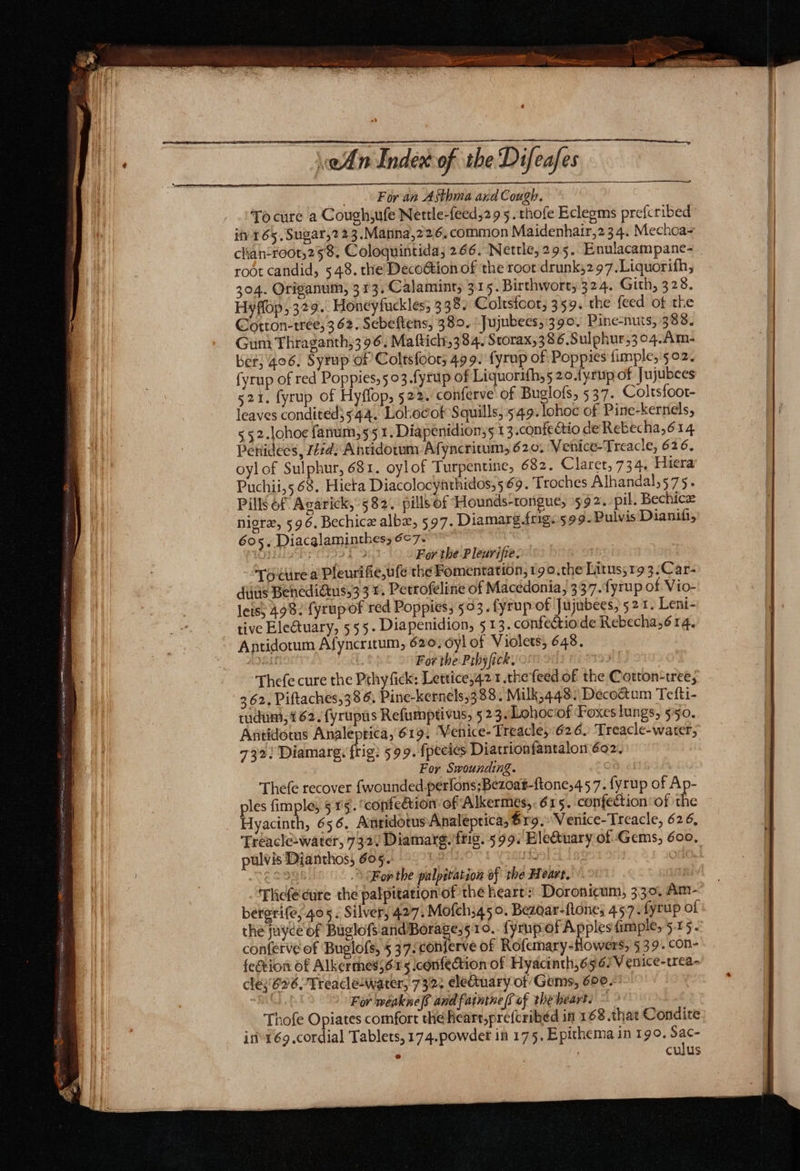 An Index of the Difeafes
For an Afthma and Cough.
To cure a Cough,ufe Nettle-feed,295.thofe Eclegms prefcribed
in 165.Sugar,223.Manna,226,common Maidenhair,234. Mechoa-
chan-root,258. Coloquintida, 266. Nettle,295. Enulacampane-
root candid, 548. the Decoction of the root drunk,297.Liquorifh,
304. Origanum, 313. Calamint, 315. Birthwort, 324. Gith, 328.
Hyffop, 329. Honeyfuckles, 338. Coltsfoot, 359. the feed of the
Cotton-tree, 362. Sebeftens, 380. Jujubees, 390. Pine-nuts, 388.
Gum Thraganth,396. Maftich,384. Storax,386.Sulphur,304.Am-
ber, 406. Syrup of Coltsfoot, 499. fyrup of Poppies fimple, 502.
fyrup of red Poppies,503.fyrup of Liquorifh,520.fyrup of Jujubees
521. fyrup of Hyffop, 522. conferve of Buglofs, 537. Coltsfoot-
leaves condited,544. Lohocof Squills, 549.lohoc of Pine-kernels,
552.lohoc fanum,551.Diapenidion,513.confectio de Rebecha,614
Penidees, Ibid. Antidotum Afyncritum, 620. Venice-Treacle, 626.
oyl of Sulphur, 681. oyl of Turpentine, 682. Claret, 734. Hiera
Puchii,568. Hiera Diacolocynthidos,569. Troches Alhandal,575.
Pills of Agarick, 582. pills of Hounds-tongue, 592. pil. Bechicæ
nigræ, 596. Bechicæ albæ, 597. Diamarg.frig. 599.Pulvis Dianifi,
605. Diacalaminthes, 607.
For the Pleurifie.
To cure a Pleurifie,ufe the Fomentation, 190.the Litus,193.Car-
duus Benedictus,331. Petrofeline of Macedonia, 337.fyrup of Vio-
lets, 498. fyrup of red Poppies, 503. fyrup of Jujubees, 521. Leni-
tive Electuary, 555. Diapenidion, 513. confectio de Rebecha,614.
Antidotum Afyncritum, 620. oyl of Violets, 648.
For the Pthyfick.
Thefe cure the Pthyfick: Lettice,421.the feed of the Cotton-tree,
362. Piftaches,386. Pine-kernels,388. Milk,448. Decoctum Tefti-
tudum,162. fyrupus Refumptivus, 523. Lohoc of Foxes lungs, 550.
Antidotus Analeptica, 619. Venice-Treacle, 626. Treacle-water,
732. Diamarg. frig. 599. fpecies Diatrionfantalon 602.
For Swounding.
Thefe recover fwounded perfons;Bezoar-ftone,457. fyrup of Ap-
ples fimple, 515. confection of Alkermes, 615. confection of the
Hyacinth, 656. Antidotus Analeptica, 619. Venice-Treacle, 626.
Treacle-water, 732. Diamarg. frig. 599. Electuary of Gems, 600.
pulvis Dianthos, 605.
For the palpitation of the Heart.
Thefe cure the palpitation of the heart: Doronicum, 330. Am-
bergrife, 405. Silver, 427. Mofch,450. Bezoar-ftone, 457.fyrup of
the juyce of Buglofs and Borage,510. fyrup of Apples fimple, 515.
conferve of Buglofs, 537. conferve of Rofemary-flowers, 539. con-
fection of Alkermes,615.confection of Hyacinth,656.Venice-trea-
cle, 626. Treacle-water, 732. electuary of Gems, 600.
For weakneff and faintneff of the heart.
Thofe Opiates comfort the heart,prefcribed in 168.that Condite
in 169.cordial Tablets,174.powder in 175. Epithema in 190. Sac-
culus